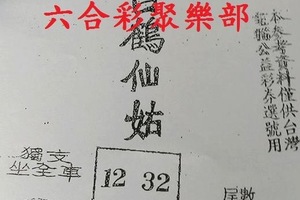 六合彩聚樂部
鶴仙姑
本參考資料僅供台灣
電腦公益彩券選號用
獨支
坐全車
12 32
尾數